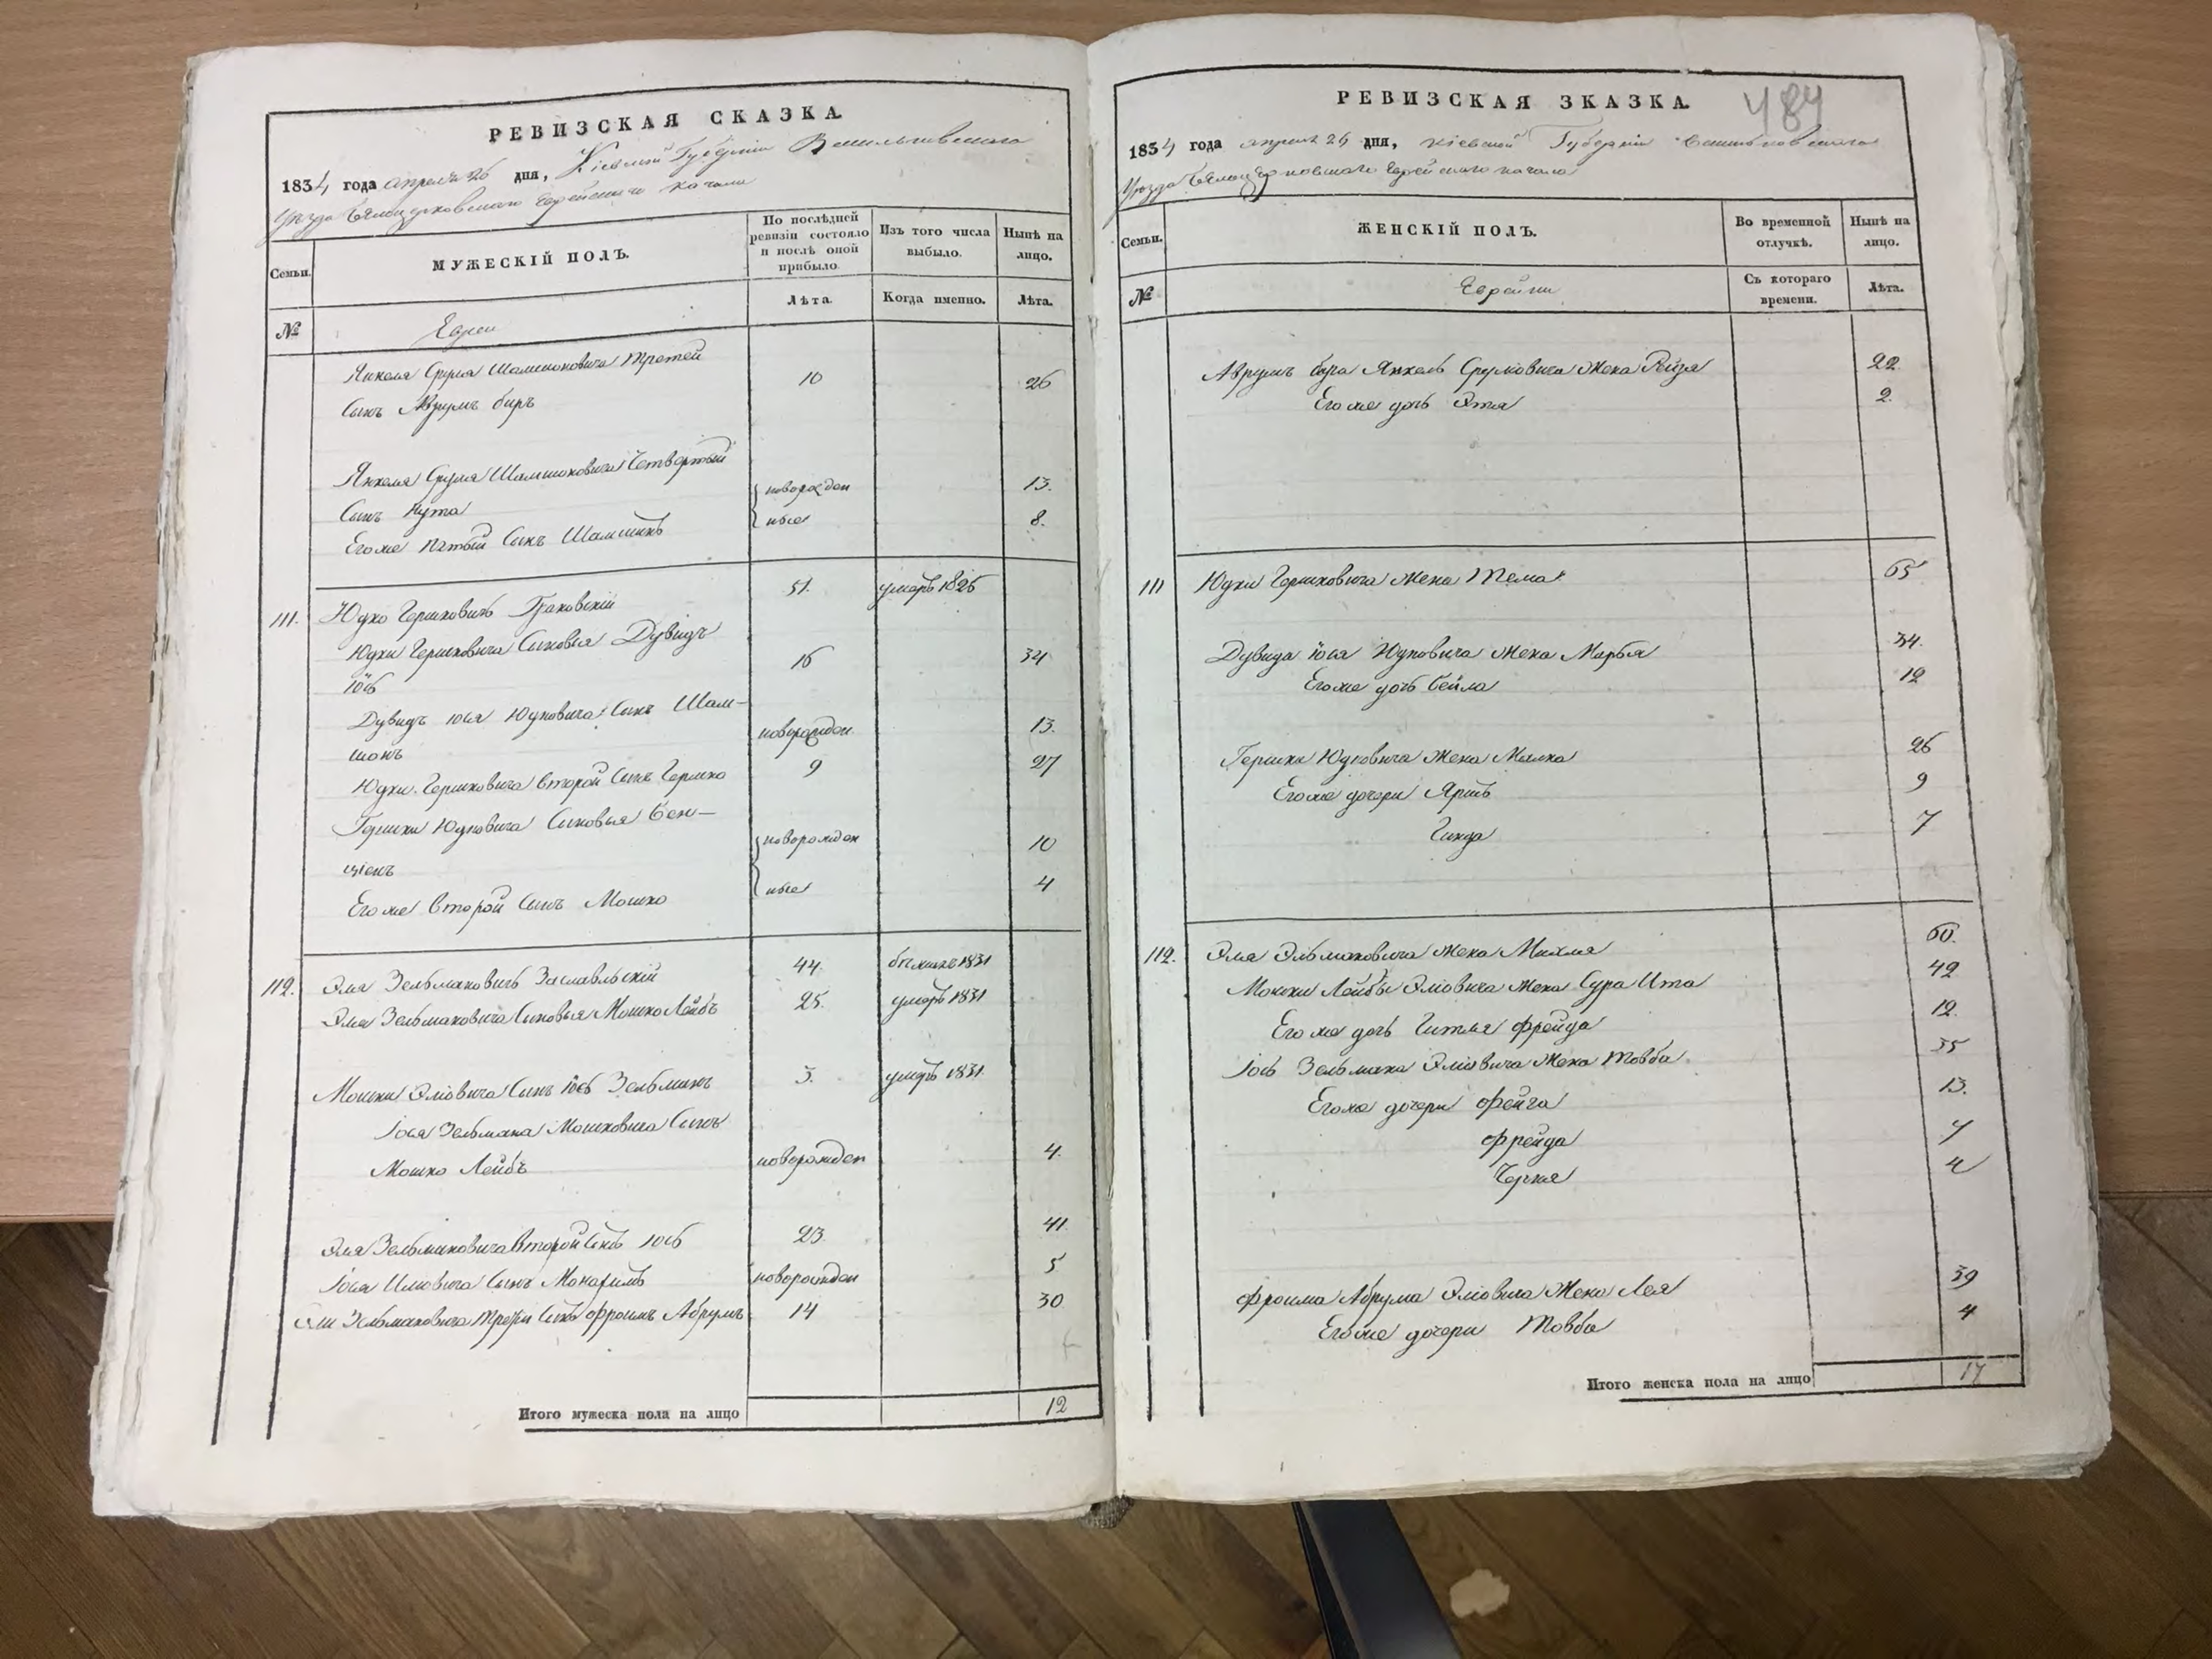 РЕВИЗСКАЯ СКАЗКА.
1834 года апреля 26 дня, Кіевской Губерніи Васильковскаго
Уезда Белоцерковскаго Еврейскаго кагала
Семьи.
МУЖЕСКІЙ ПОЛЪ.
По послѣдней ревизіи состояло и послѣ оной прибыло.
Изъ того числа выбыло.
Нынѣ на лицо.
Лѣта.
Когда именно.
Лѣта.
№
Евреи
Янкеля Сруля Шамшоновича третей
Сынъ Аврумъ Беръ 10 26
Янкеля Сруля Шамшоновича Четвертый
Сынъ Нута новорожден 13.
Его же пятый Сынъ Шамшинъ ные 8.
111. Юдко ГершковичъГраковскій 51. умеръ 1826
Юдки Гершковича Сыновья Дувидъ
Іось 16 34
Дувидъ Іося Юдковича Сынъ Шам-
шонъ новорожден. 13.
Юдки Гершковича второй Сынъ Гершко 9 27
Гершки Юдковича Сыновья Бен-
ціенъ новорожден 10
Его же второй Сынъ Мошко ные 4
112. Эля Зельмановичъ Заславльскій 44. 1831
Эля Зельмановича Сыновья Мошко Лейбъ 25. умеръ 1831
Мошки Эліовича Сынъ Іось Зельманъ 3. умеръ 1831
Іося Зельмана Мошковича Сынъ
Мошко Лейбъ новорожден 4.
Эля Зельмановича второй Сынъ Іось 23 41.
Іося Иліовича Сынъ новорожден 5
Эли Зельмановича третій Сынъ Фроимъ Абрумъ 14 30
Итого мужеска пола на лицо 12
РЕВИЗСКАЯ ЗКАЗКА.
484
1834 года апреля 26 дня, Кіевской Губерніи Васильковскаго
Уезда Белоцерковскаго Еврейскаго кагала
Семьи.
ЖЕНСКІЙ ПОЛЪ.
Во временной отлучкѣ.
Нынѣ на лицо.
№
Еврейки
Съ котораго времени.
Лѣта.
Аврумъ Бера Янкель Срулювича жена Рейзя 22
Его же дочь Этя 2
111 Юдки Гершковича жена Тема 65
Дувида Іося Юдковича жена Марья 34.
Его же дочь Бейла 12
Гершки Юдковича жена Малка 26
Его же дочери 9
Гинда 7
112. Эля Зельмановича жена Михля 60.
Мошки Лейбы Эліовича жена Сура Ита 42
Его же дочь Гитля Фрейда 12
Іось Зельмана Эліовича жена Товба 35
Его же дочери Фейга 13.
Фрейда 7
Черня 4
Фроима Абрума Эліовича жена Лея 39
Его же дочери Товба 4
Итого женска пола на лицо 17